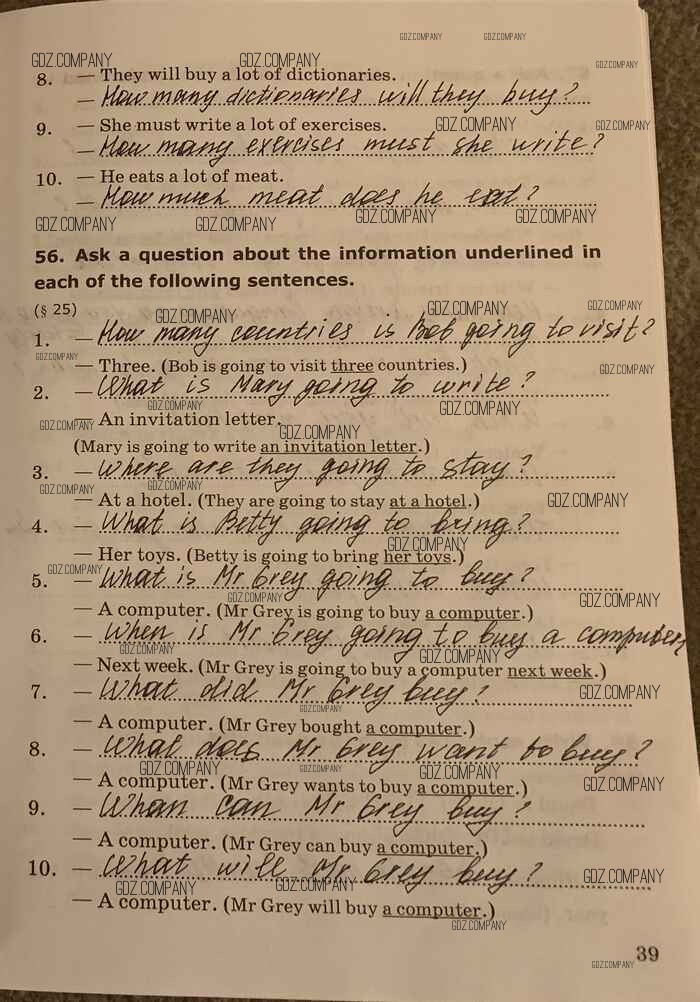 GDZ.COMPANY GDZ.COMPANY
GDZ.COMPANY GDZ.COMPANY GDZ.COMPANY
8. — They will buy a lot of dictionaries.
— How many dictionaries will they buy?
9. — She must write a lot of exercises. GDZ.COMPANY GDZ.COMPANY
— How many exercises must she write?
10. — He eats a lot of meat.
— How much meat does he eat?
GDZ.COMPANY GDZ.COMPANY GDZ.COMPANY GDZ.COMPANY
56. Ask a question about the information underlined in
each of the following sentences.
(§ 25)
GDZ.COMPANY GDZ.COMPANY GDZ.COMPANY
1. — How many countries is Bob going to visit?
GDZ.COMPANY
— Three. (Bob is going to visit three countries.) GDZ.COMPANY
2. — What is Mary going to write?
GDZ.COMPANY GDZ.COMPANY
— An invitation letter.
GDZ.COMPANY GDZ.COMPANY
(Mary is going to write an invitation letter.)
3. — Where are they going to stay?
GDZ.COMPANY GDZ.COMPANY
— At a hotel. (They are going to stay at a hotel.) GDZ.COMPANY
4. — What is Betty going to bring?
GDZ.COMPANY
— Her toys. (Betty is going to bring her toys.)
GDZ.COMPANY
5. — What is Mr Grey going to buy?
GDZ.COMPANY GDZ.COMPANY
— A computer. (Mr Grey is going to buy a computer.)
6. — When is Mr Grey going to buy a computer?
GDZ.COMPANY GDZ.COMPANY
— Next week. (Mr Grey is going to buy a computer next week.)
7. — What did Mr Grey buy? GDZ.COMPANY
GDZ.COMPANY
— A computer. (Mr Grey bought a computer.)
8. — What does Mr Grey want to buy?
GDZ.COMPANY GDZ.COMPANY GDZ.COMPANY
— A computer. (Mr Grey wants to buy a computer.) GDZ.COMPANY
9. — Whan can Mr Grey buy?
— A computer. (Mr Grey can buy a computer.)
10. — What will Mr Grey buy?
GDZ.COMPANY GDZ.COMPANY GDZ.COMPANY
— A computer. (Mr Grey will buy a computer.)
GDZ.COMPANY
39
GDZ.COMPANY